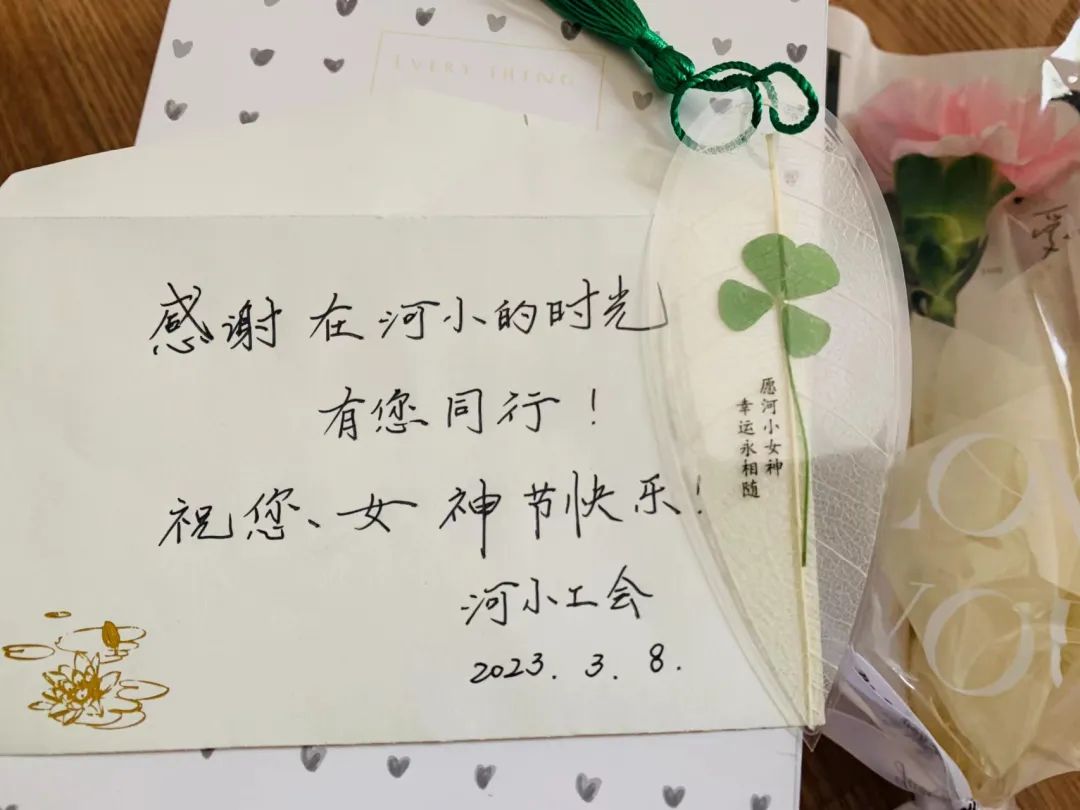 EVERY THING
感谢在河小的时光
有您同行！
祝您、女神节快乐！
河小工会
2023.3.8.
愿河小女神
幸运永相随
LOV
YOU